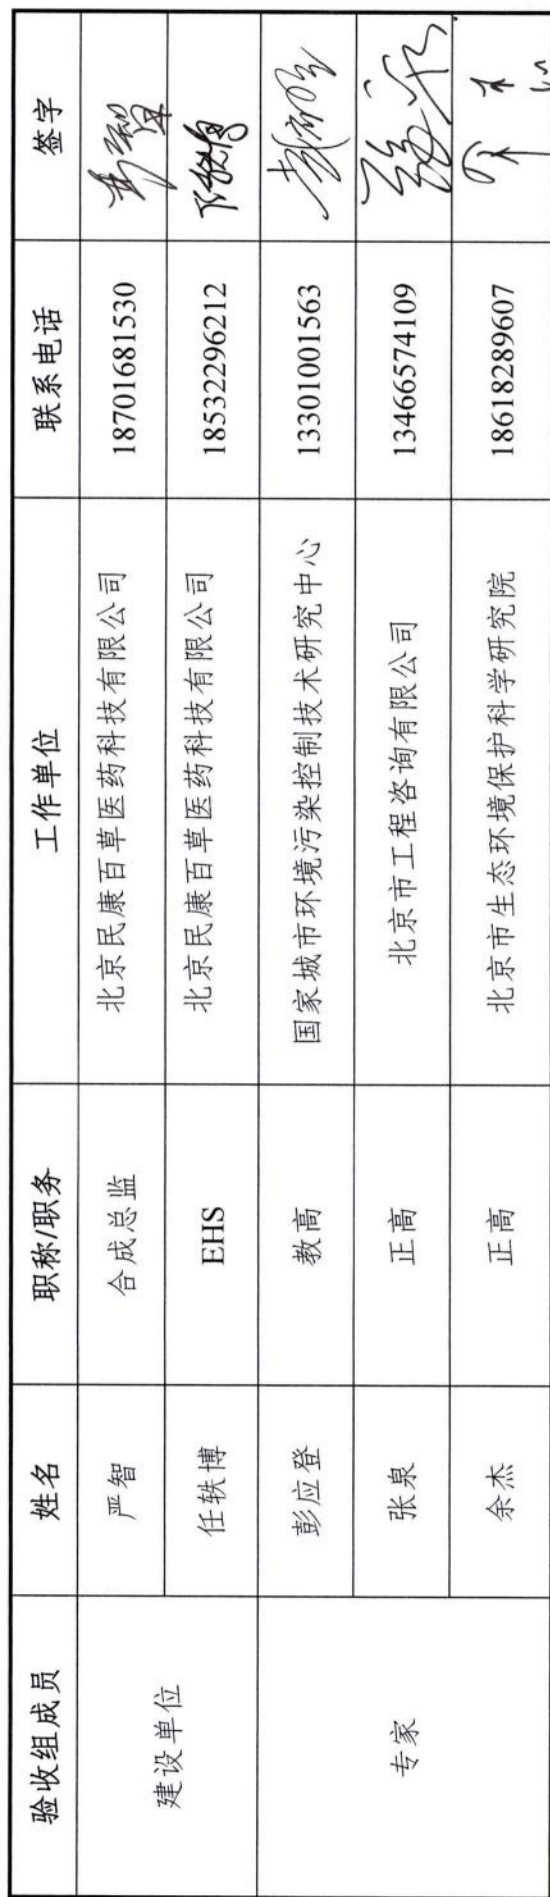 验收组成员 姓名 职称/职务 工作单位 联系电话 签字
建设单位 严智 合成总监 北京民康百草医药科技有限公司 18701681530
任轶博 EHS 北京民康百草医药科技有限公司 18532296212
专家 彭应登 教高 国家城市环境污染控制技术研究中心 13301001563
张泉 正高 北京市工程咨询有限公司 13466574109
余杰 正高 北京市生态环境保护科学研究院 18618289607